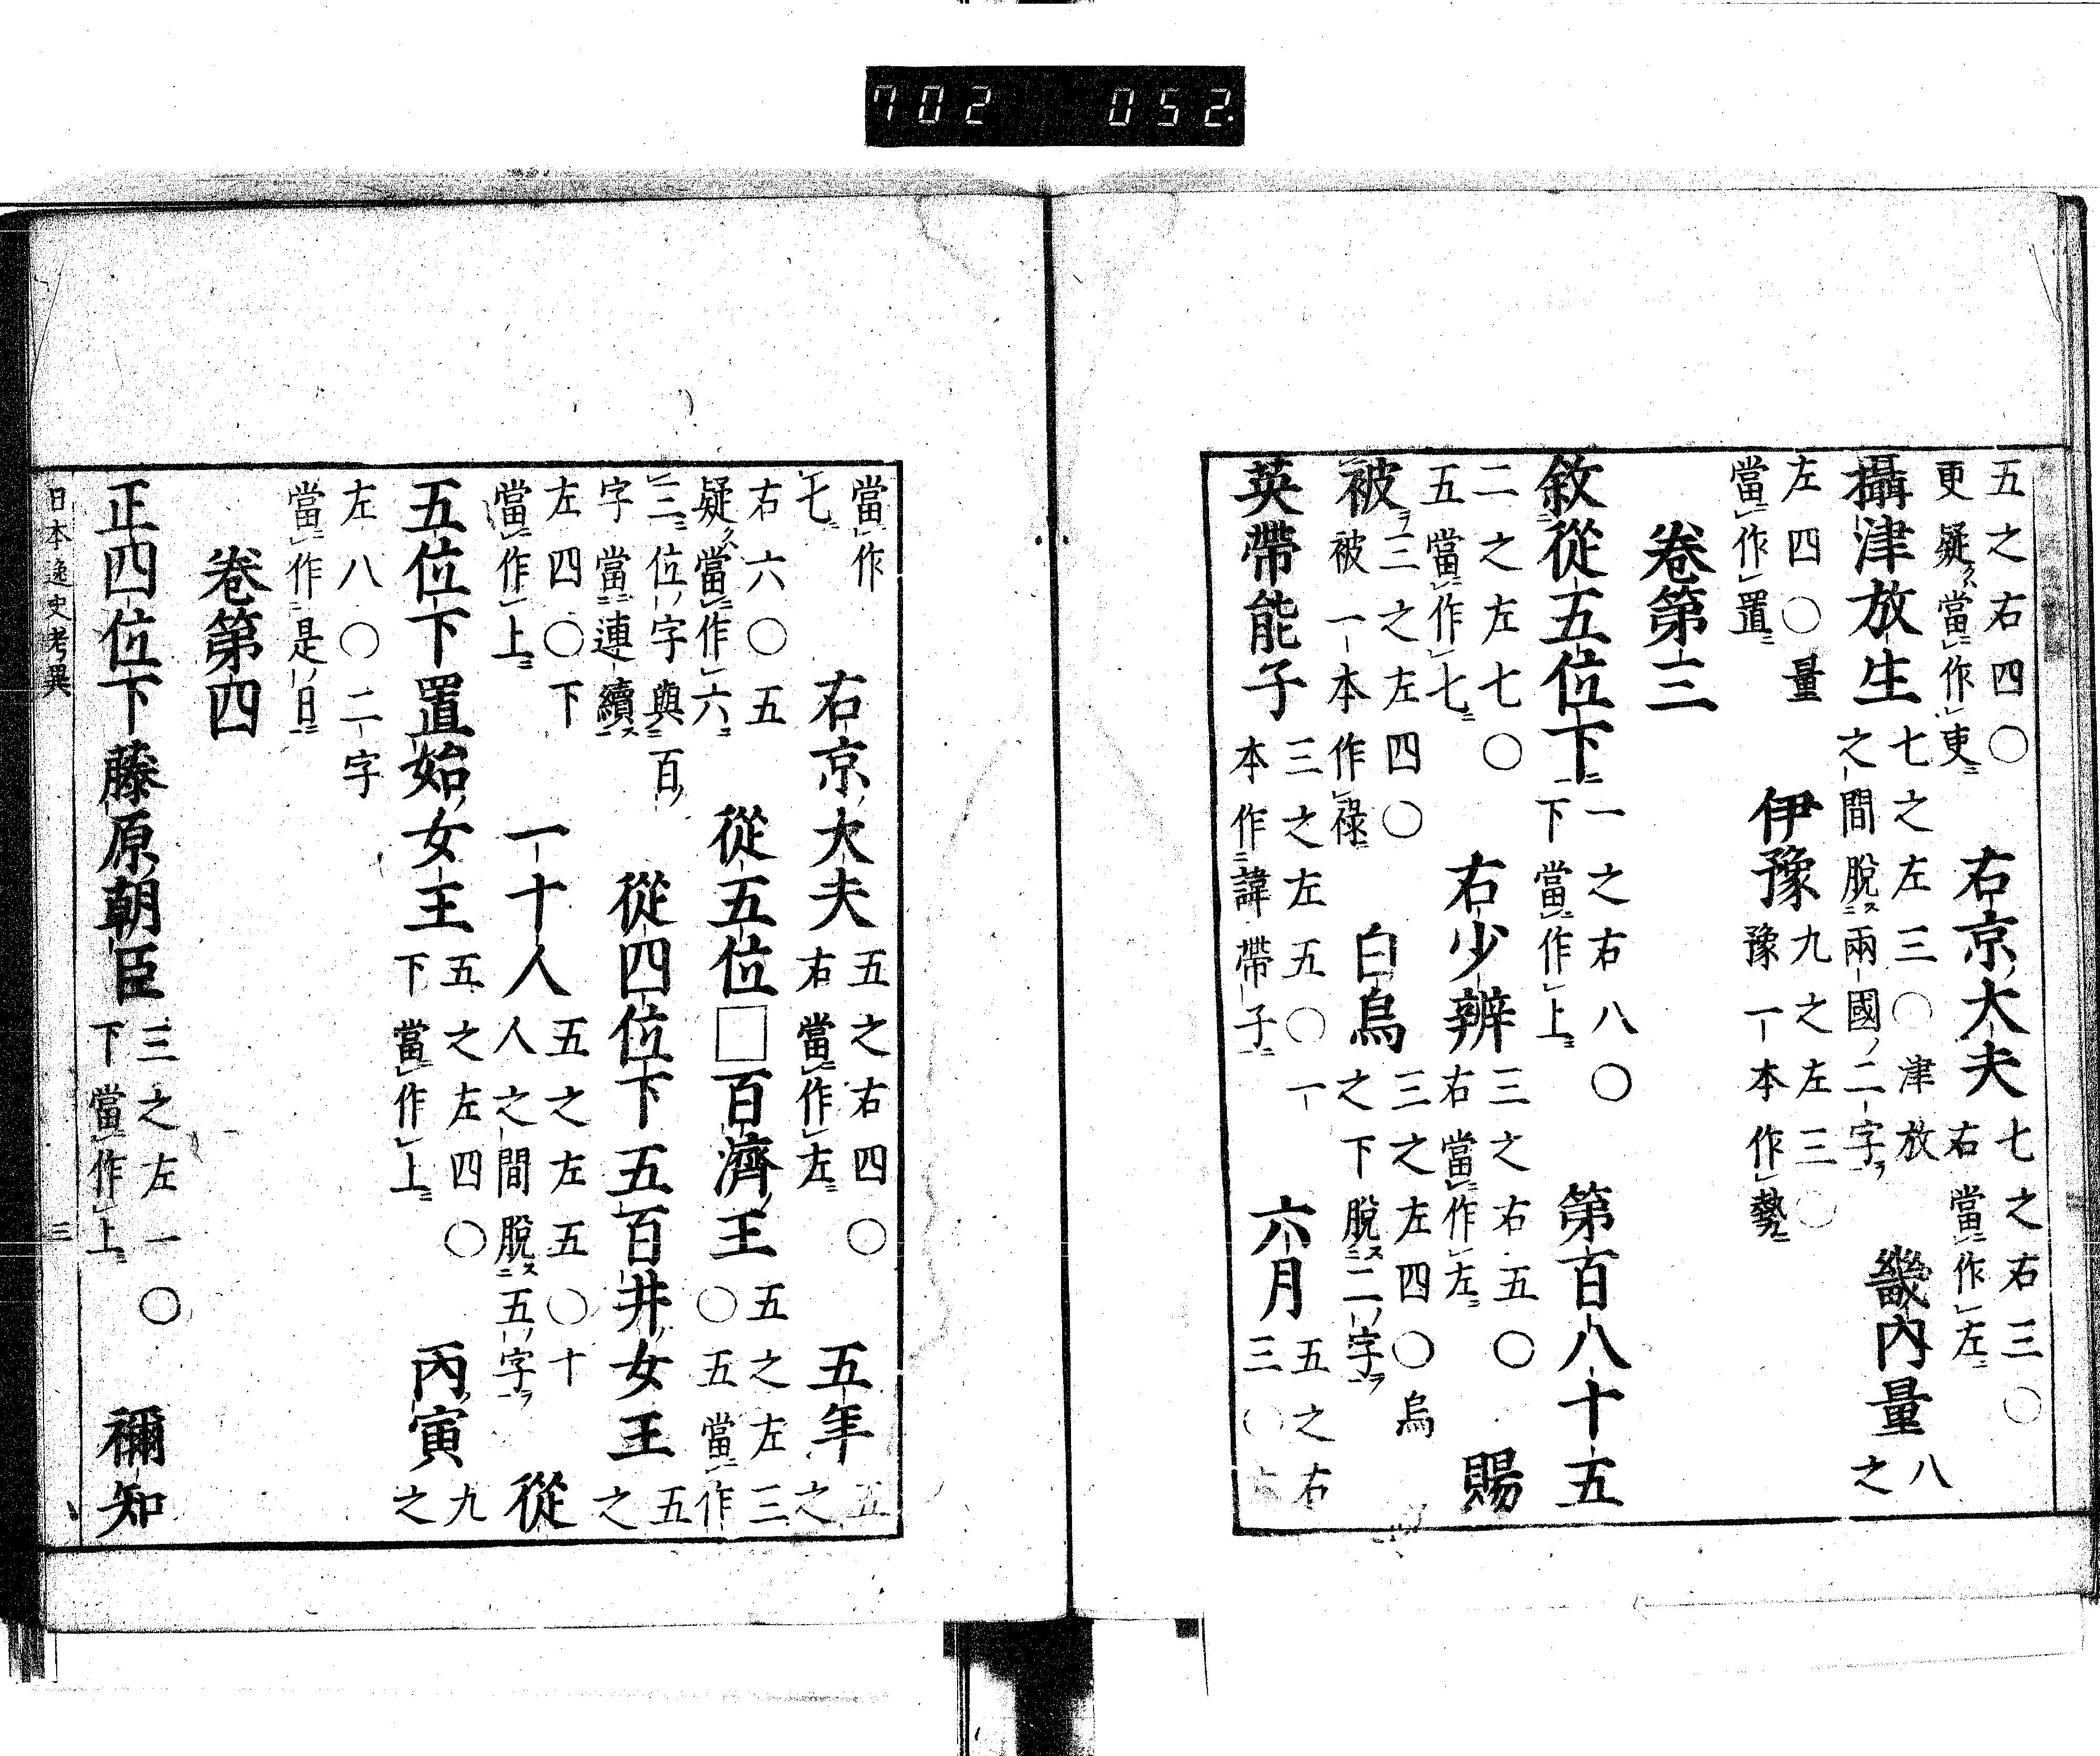 702 052
五之右四〇
更疑當作吏
右京大夫
七之右三〇
右當作左
攝津放生
七之左三〇津放
之間脫兩國二字
畿內量
八
之
左四〇量
當作置
伊豫
九之左三〇
豫一本作勢
卷第三
敘從五位下
一之右八〇
下當作上
第百八十五
二之左七〇
五當作七
右少辨
三之右五〇
右當作左
賜
被
三之左四〇
被一本作祿
白烏
三之左四〇烏
之下脫二字
英帶能子
三之左五〇一
本作諱帶子
六月
五之右
三〇六
當作
七
右京大夫
五之右四〇
右當作左
五年
五
之
右六〇五
疑當作六
從五位□百濟王
五之左三
〇五當作
三位字與百
字當連續
從四位下五百井女王
五
之
左四〇下
當作上
一十人
五之左五〇十
人之間脫五字
從
五位下置始女王
五之左四〇
下當作上
丙寅
九
之
左八〇二字
當作是日
卷第四
正四位下藤原朝臣
三之左一〇
下當作上
禰知
日本逸史考異 三